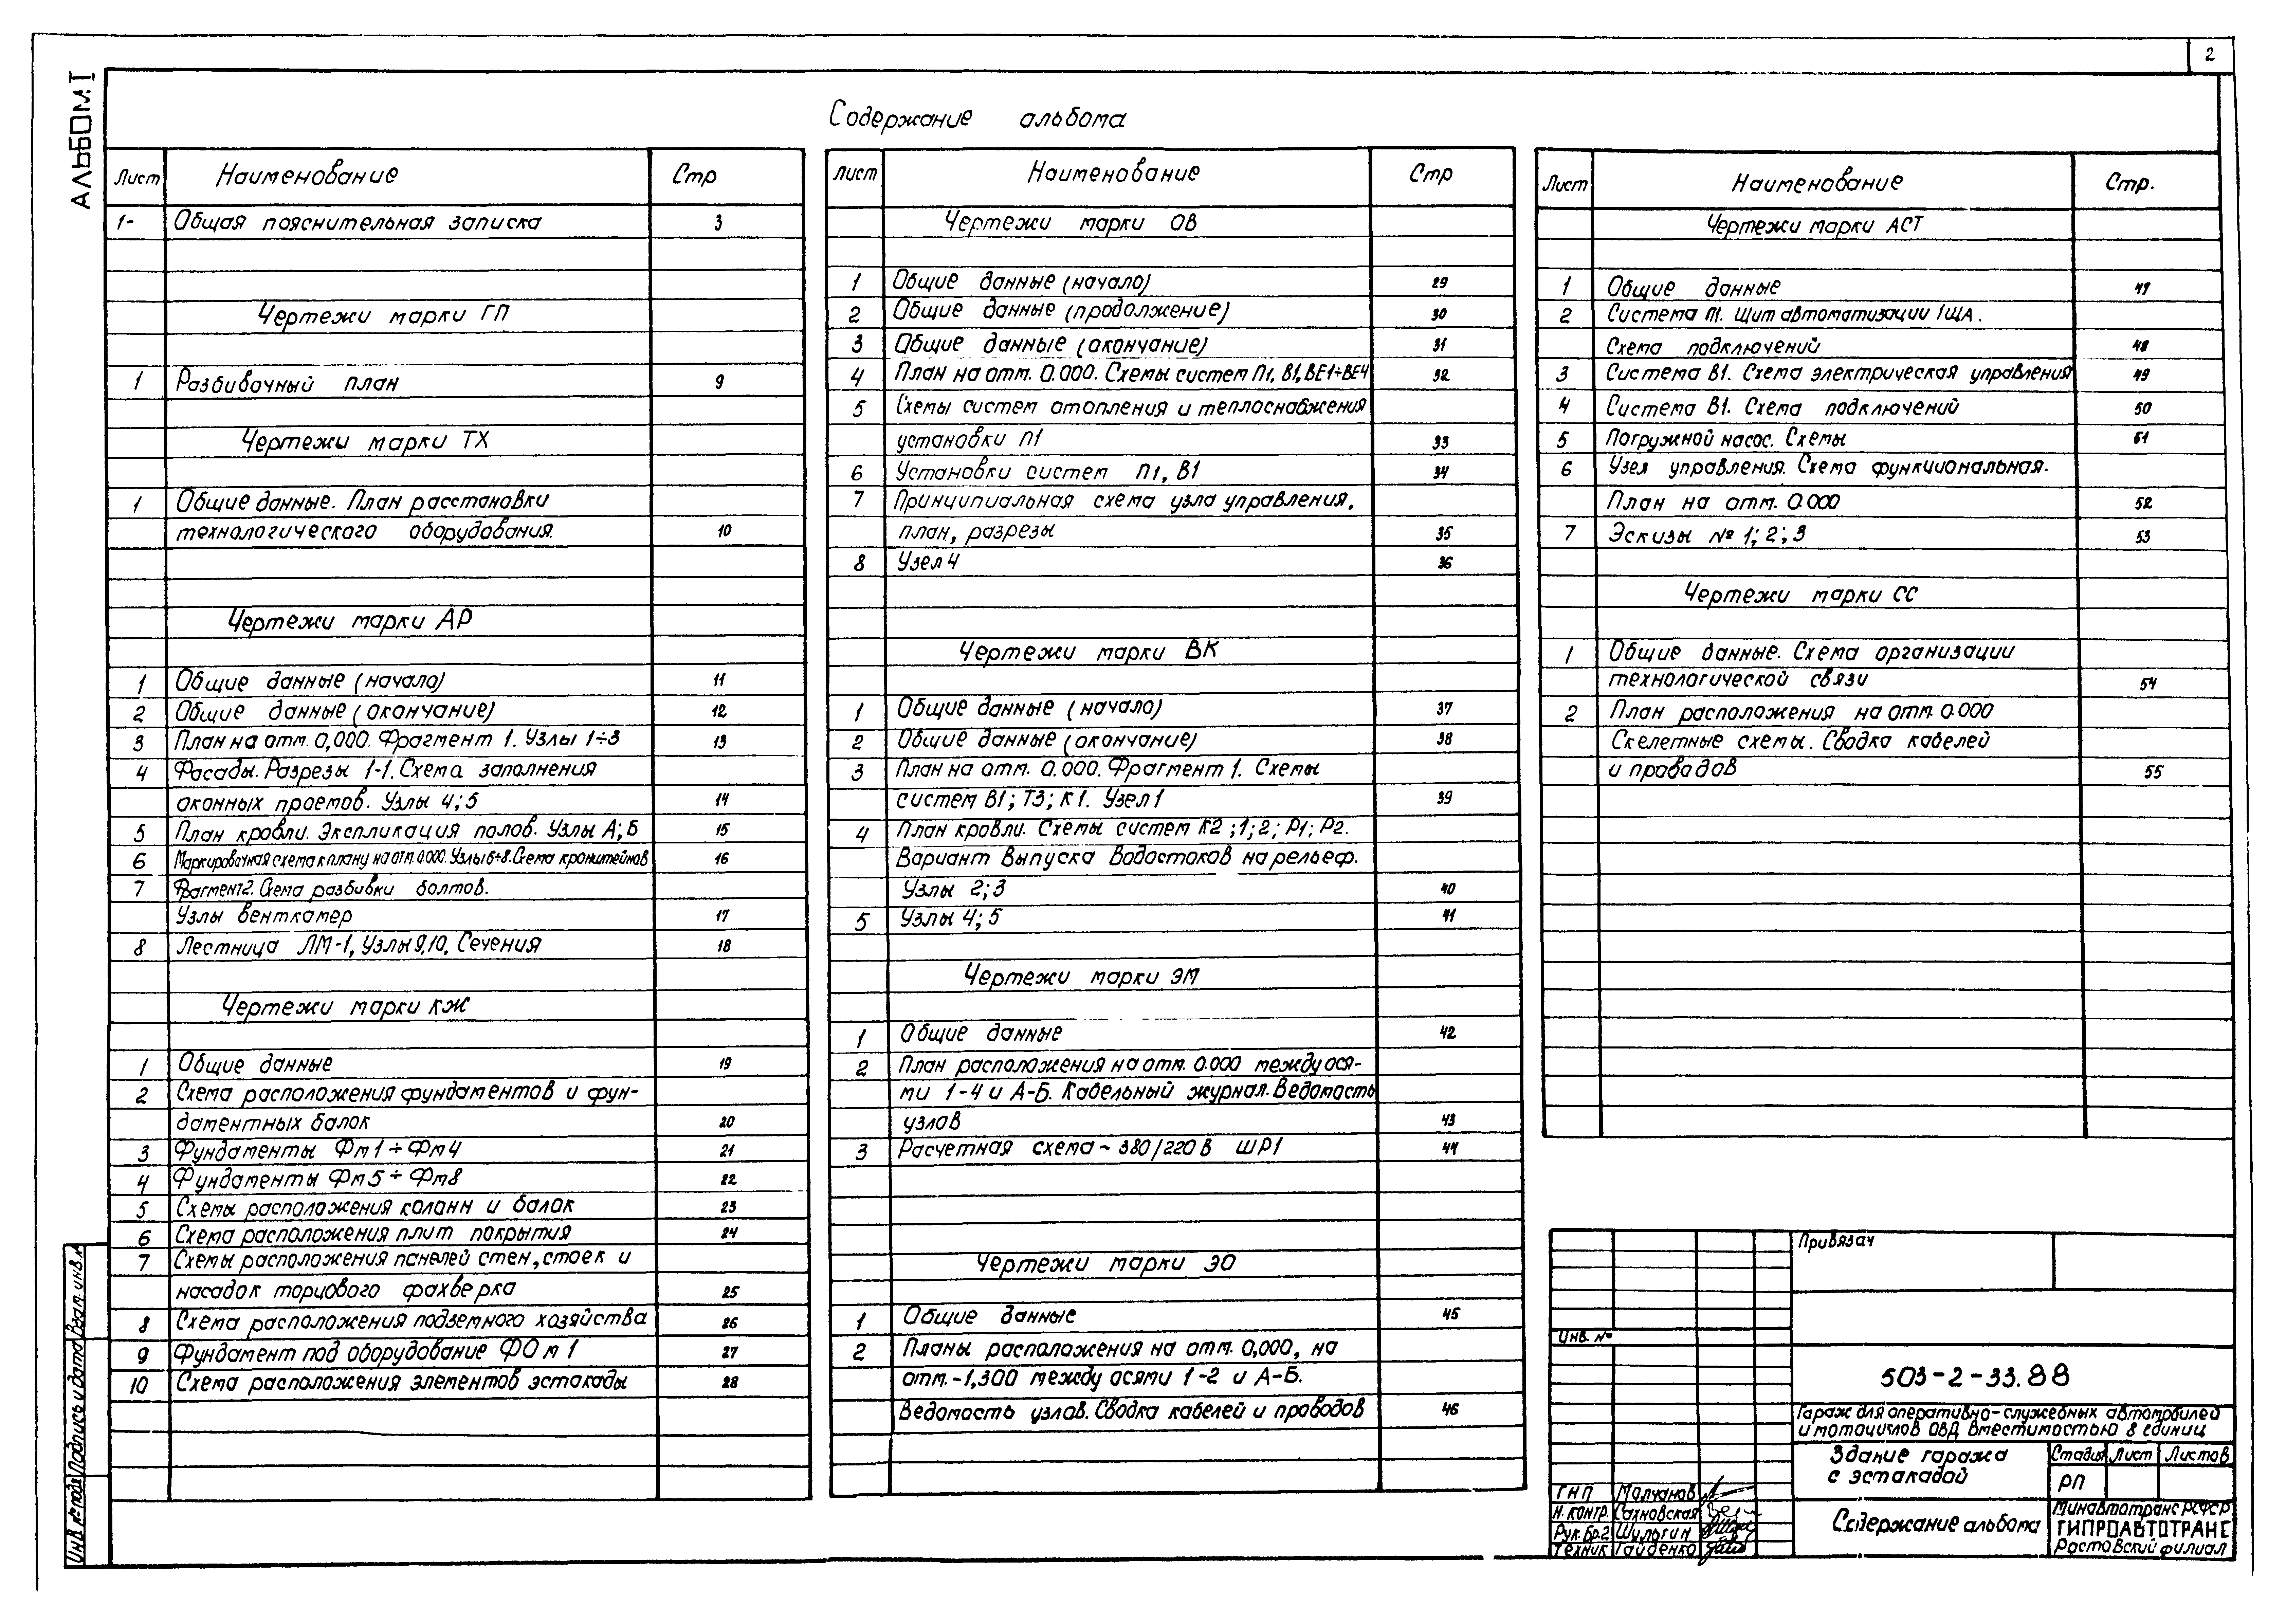 2
АЛЬБОМ I
Содержание альбома
Лист Наименование Стр
1- Общая пояснительная записка 3
Чертежи марки ГП
1 Разбивочный план 9
Чертежи марки ТХ
1 Общие данные. План расстановки
технологического оборудования. 10
Чертежи марки АР
1 Общие данные (начало) 11
2 Общие данные (окончание) 12
3 План на отм. 0,000. Фрагмент 1. Узлы 1÷3 13
4 Фасады. Разрезы 1-1. Схема заполнения
оконных проемов. Узлы 4; 5 14
5 План кровли. Экспликация полов. Узлы А; Б 15
6 Маркировочная схема к плану на отм. 0.000. Узлы 6÷8. Схема кронштейнов 16
7 Фрагмент 2. Схема разбивки болтов.
Узлы венткамер 17
8 Лестница ЛМ-1, Узлы 9,10. Сечения 18
Чертежи марки КЖ
1 Общие данные 19
2 Схема расположения фундаментов и фун-
даментных балок 20
3 Фундаменты Фм1 ÷ Фм4 21
4 Фундаменты Фм5 ÷ Фм8 22
5 Схемы расположения колонн и балок 23
6 Схема расположения плит покрытия 24
7 Схемы расположения панелей стен, стоек и
насадок торцового фахверка 25
8 Схема расположения подземного хозяйства 26
9 Фундамент под оборудование ФОм1 27
10 Схема расположения элементов эстакады 28
Лист Наименование Стр
Чертежи марки ОВ
1 Общие данные (начало) 29
2 Общие данные (продолжение) 30
3 Общие данные (окончание) 31
4 План на отм. 0.000. Схемы систем П1, В1, ВЕ1÷ВЕ4 32
5 Схемы систем отопления и теплоснабжения
установки П1 33
6 Установки систем П1, В1 34
7 Принципиальная схема узла управления,
план, разрезы 35
8 Узел 4 36
Чертежи марки ВК
1 Общие данные (начало) 37
2 Общие данные (окончание) 38
3 План на отм. 0.000. Фрагмент 1. Схемы
систем В1; Т3; К1. Узел 1 39
4 План кровли. Схемы систем К2; 1; 2; Р1; Р2.
Вариант выпуска водостоков на рельеф.
Узлы 2; 3 40
5 Узлы 4; 5 41
Чертежи марки ЭМ
1 Общие данные 42
2 План расположения на отм. 0.000 между ося-
ми 1-4 и А-Б. Кабельный журнал. Ведомость
узлов 43
3 Расчетная схема ~ 380/220 В ШР1 44
Чертежи марки ЭО
1 Общие данные 45
2 Планы расположения на отм. 0,000, на
отм. -1,300 между осями 1-2 и А-Б.
Ведомость узлов. Сводка кабелей и проводов 46
Лист Наименование Стр.
Чертежи марки АСТ
1 Общие данные 47
2 Система П1. Щит автоматизации 1ЩА.
Схема подключений 48
3 Система В1. Схема электрическая управления 49
4 Система В1. Схема подключений 50
5 Погружной насос. Схемы 51
6 Узел управления. Схема функциональная.
План на отм. 0.000 52
7 Эскизы № 1; 2; 3 53
Чертежи марки СС
1 Общие данные. Схема организации
технологической связи 54
2 План расположения на отм. 0.000
Скелетные схемы. Сводка кабелей
и проводов 55
Привязан
Инв. №
503-2-33.88
Гараж для оперативно-служебных автомобилей
и мотоциклов ОВД вместимостью 8 единиц
Здание гаража
с эстакадой
Стадия Лист Листов
РП
Содержание альбома
Минавтотранс РСФСР
ГИПРОАВТОТРАНС
Ростовский филиал
ГНП Молчанов
Н. контр. Сахновская
Рук. бр. 2 Шульгин
Техник Гайденко
Инв. № подл. Подпись и дата Взам. инв. №